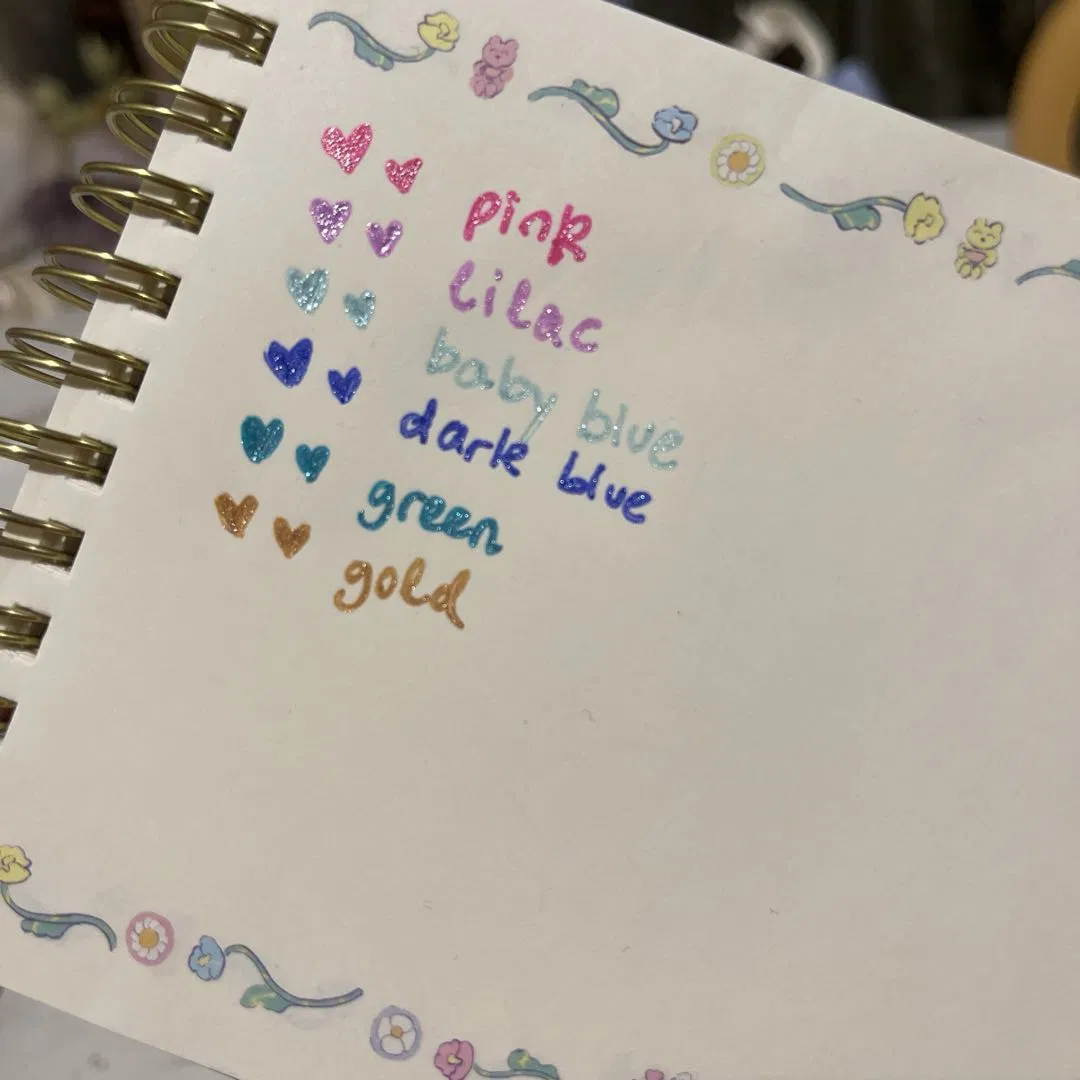 pink
lilac
baby blue
dark blue
green
gold